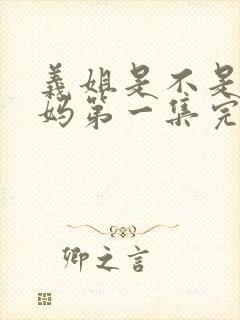 義姐是不是
妈第一集完
卿之言